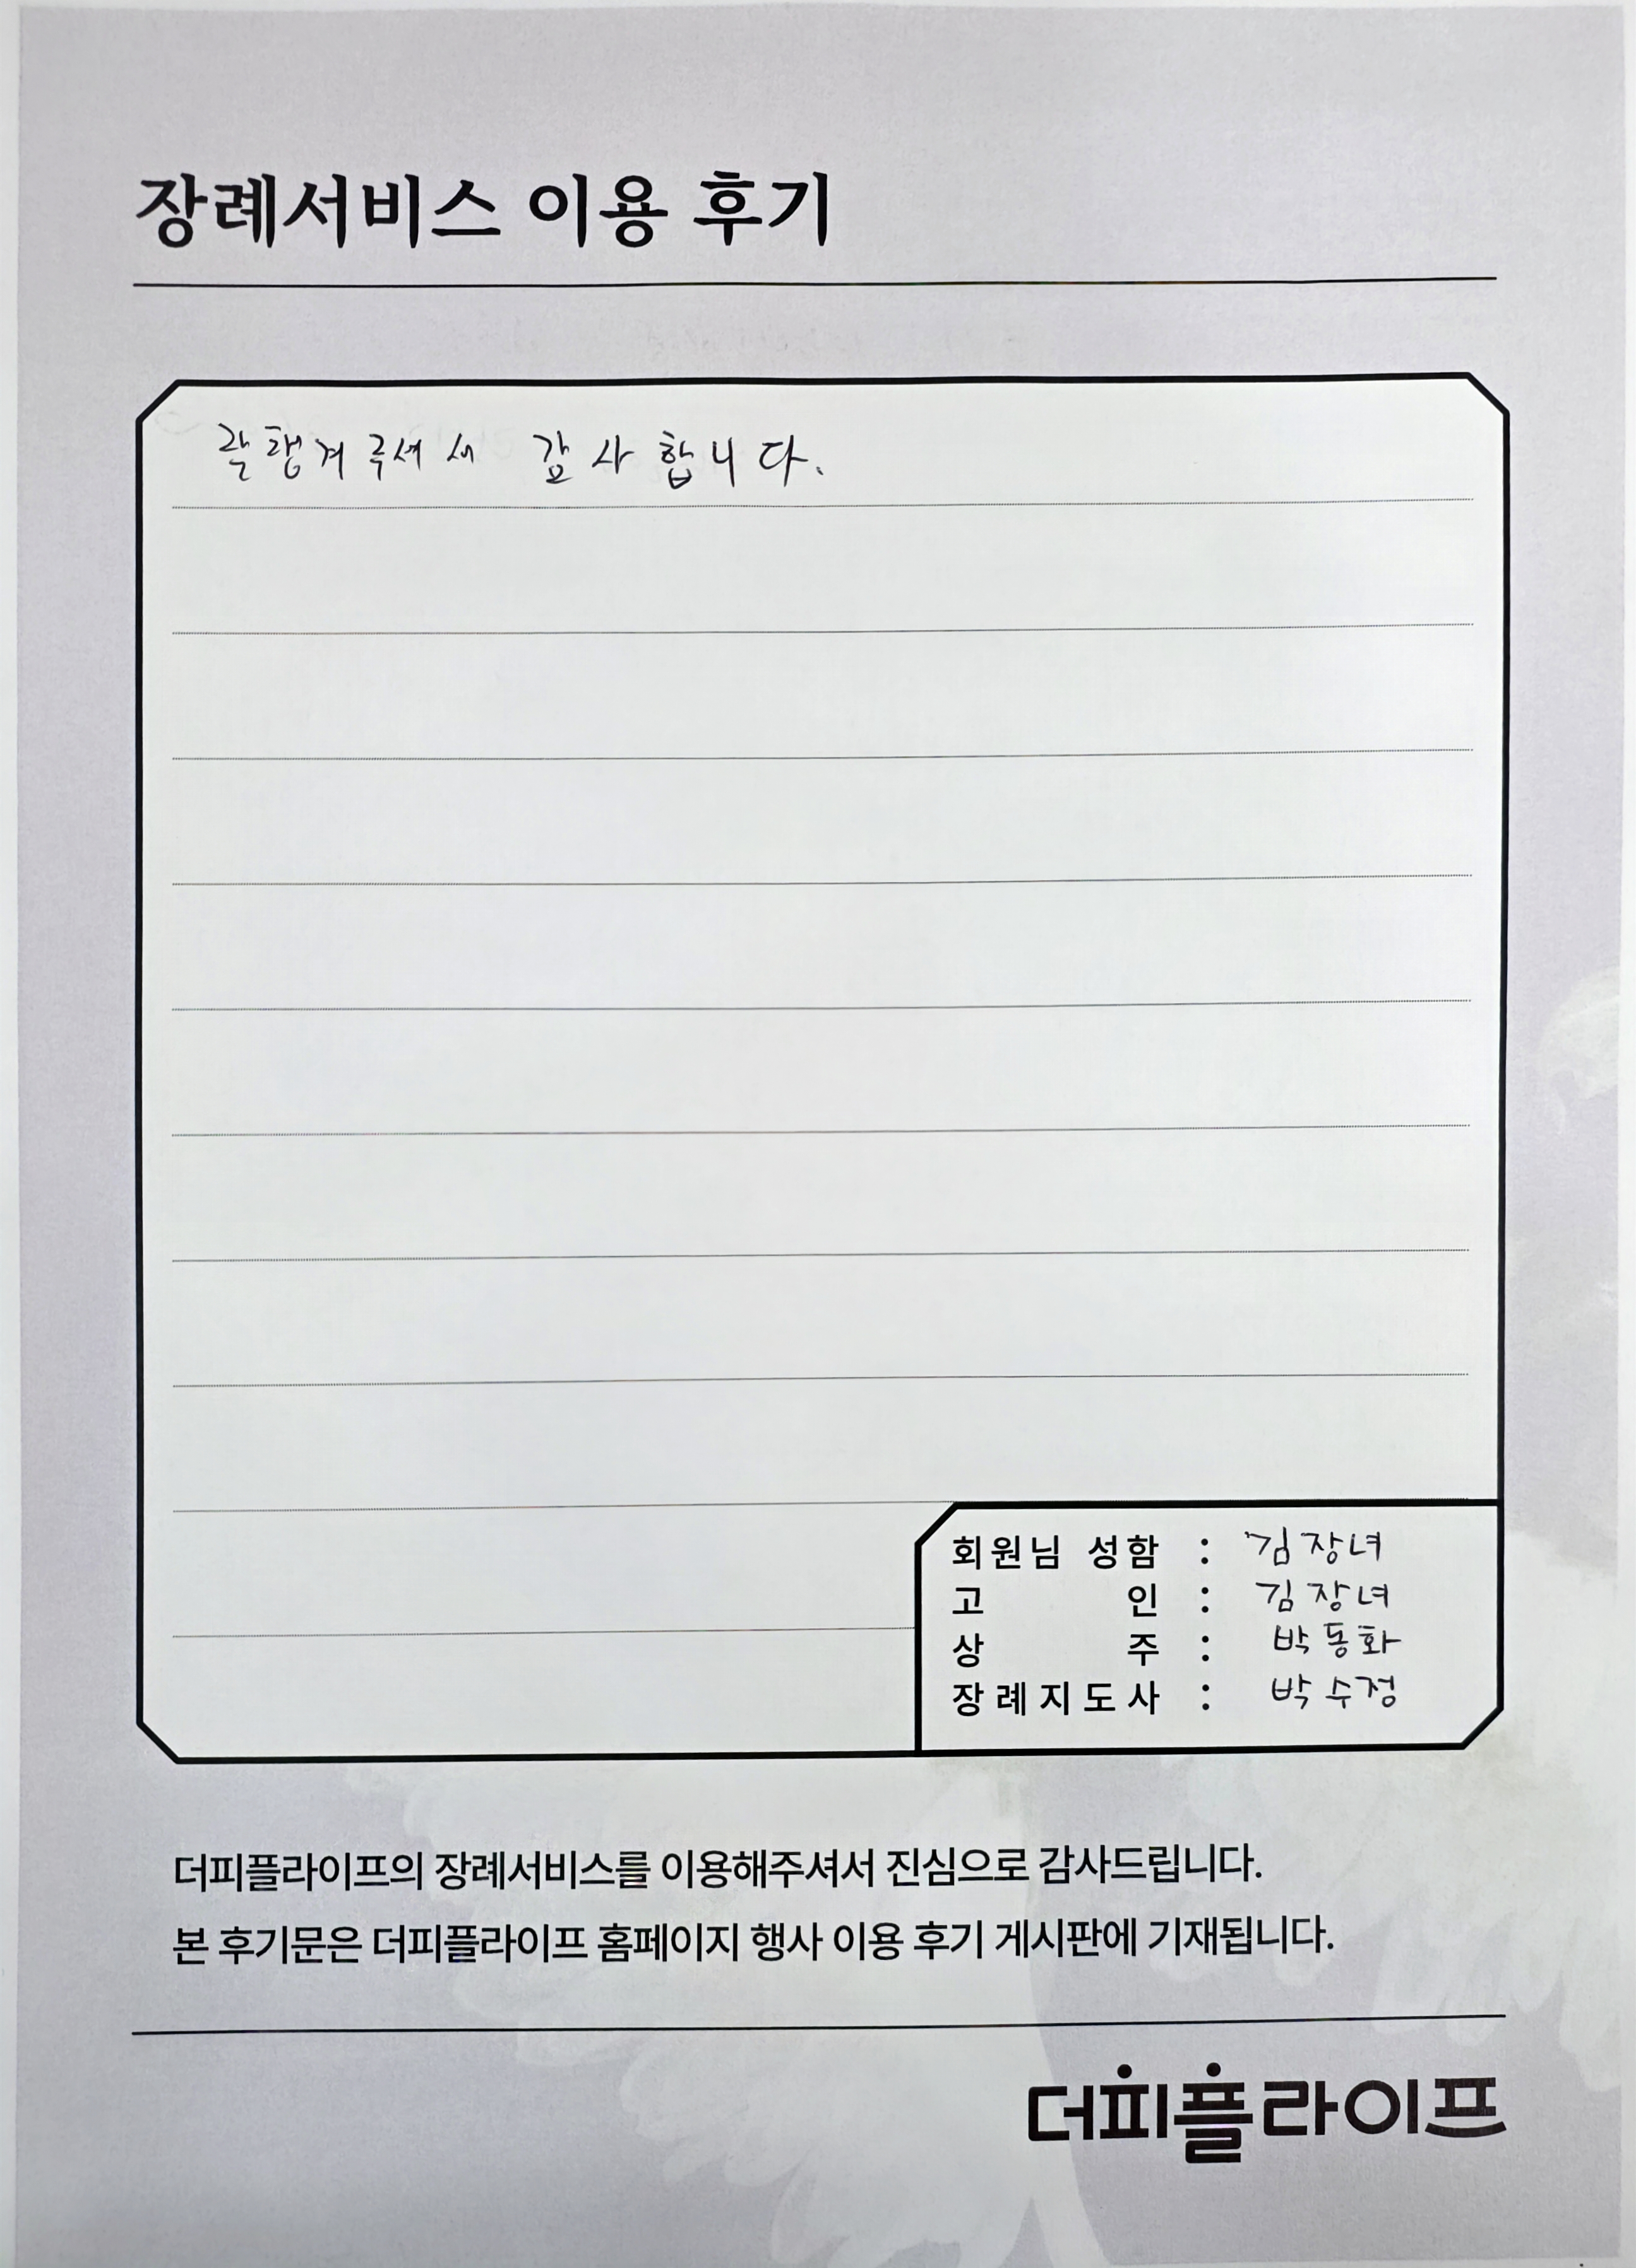 장례서비스 이용 후기
잘 챙겨주셔서 감사합니다.
회원님 성함 : 김장녀
고 인 : 김장녀
상 주 : 박동화
장례지도사 : 박수정
더피플라이프의 장례서비스를 이용해주셔서 진심으로 감사드립니다.
본 후기문은 더피플라이프 홈페이지 행사 이용 후기 게시판에 기재됩니다.
더피플라이프